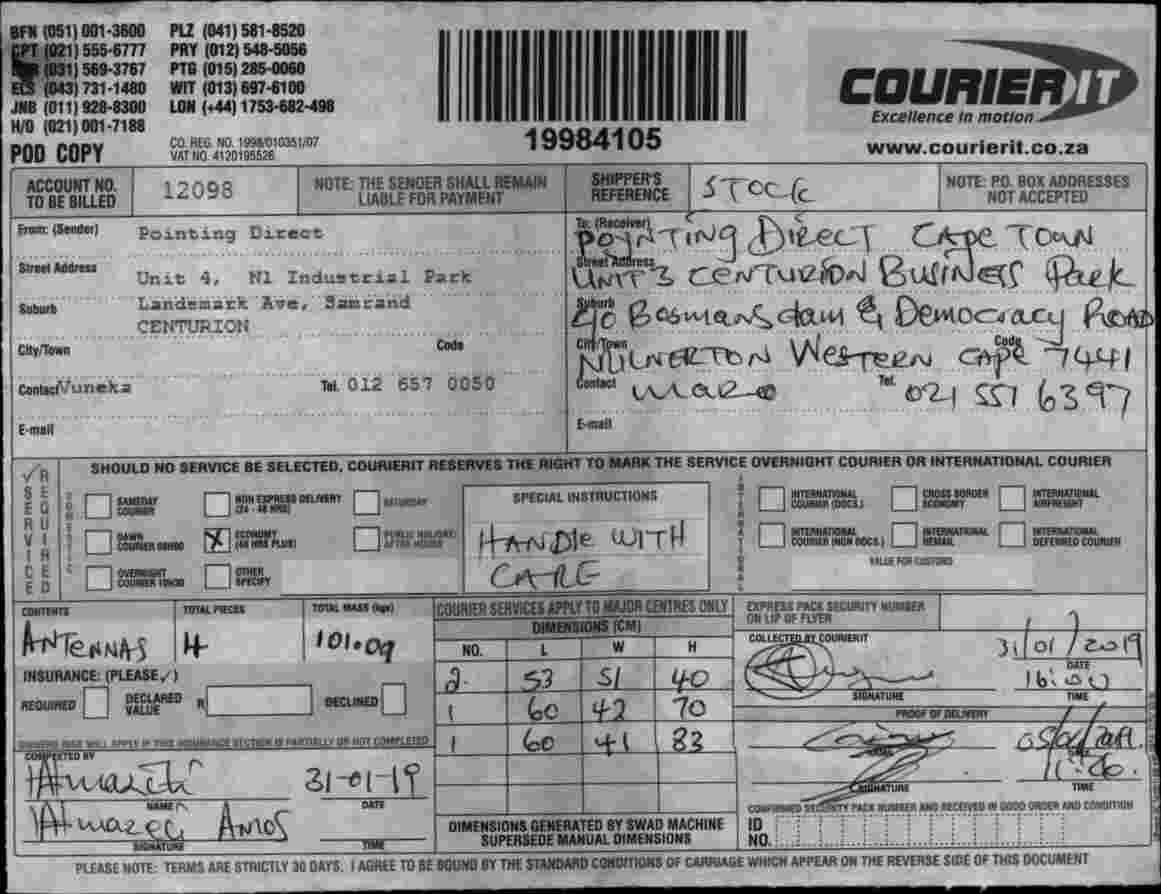 BFN (051) 001-3600 PLZ (041) 581-8520
CPT (021) 555-6777 PRY (012) 548-5056
(031) 569-3767 PTG (015) 285-0060
ELS (043) 731-1480 WIT (013) 697-6100
JNB (011) 928-8300 LON (+44) 1753-682-498
H/O (021) 001-7188
CO. REG. NO. 1998/010351/07
VAT NO. 4120195526
POD COPY
19984105
COURIER IT
Excellence in motion
www.courierit.co.za
ACCOUNT NO. TO BE BILLED 12098
NOTE: THE SENDER SHALL REMAIN LIABLE FOR PAYMENT
SHIPPER'S REFERENCE STOCK
NOTE: P.O. BOX ADDRESSES NOT ACCEPTED
From: (Sender) Pointing Direct
Street Address Unit 4, N1 Industrial Park
Suburb Landsmark Ave, Samrand
CENTURION
City/Town Code
Contact Vuneka Tel. 012 657 0050
E-mail
To: (Receiver) POYNTING DIRECT CAPE TOWN
Street Address UNIT 3 CENTURION BUSINESS Park
Suburb C/O Bosmansdam & Democracy ROAD
City/Town MILNERTON WESTERN CAPE Code 7441
Contact Tel. 021 551 6397
E-mail
SERVICE REQUIRED
SHOULD NO SERVICE BE SELECTED, COURIERIT RESERVES THE RIGHT TO MARK THE SERVICE OVERNIGHT COURIER OR INTERNATIONAL COURIER
DOMESTIC
SAMEDAY COURIER
NON EXPRESS DELIVERY (24 - 48 HRS)
SATURDAY
DAWN COURIER 08H00
X ECONOMY (48 HRS PLUS)
PUBLIC HOLIDAY/ AFTER HOURS
OVERNIGHT COURIER 10H30
OTHER SPECIFY
SPECIAL INSTRUCTIONS
HANDLE WITH
CARE
INTERNATIONAL
INTERNATIONAL COURIER (DOCS.)
CROSS BORDER ECONOMY
INTERNATIONAL AIRFREIGHT
INTERNATIONAL COURIER (NON DOCS.)
INTERNATIONAL REMAIL
INTERNATIONAL DEFERRED COURIER
VALUE FOR CUSTOMS
CONTENTS TOTAL PIECES TOTAL MASS (kgs)
ANTENNAS 4 101.09
INSURANCE: (PLEASE ✓)
REQUIRED DECLARED VALUE R DECLINED
OWNERS RISK WILL APPLY IF THIS INSURANCE SECTION IS PARTIALLY OR NOT COMPLETED
COMPLETED BY
31-01-19
NAME DATE
Amos
SIGNATURE TIME
COURIER SERVICES APPLY TO MAJOR CENTRES ONLY
DIMENSIONS (CM)
NO. L W H
2. 53 51 40
1 60 42 70
1 60 41 83
DIMENSIONS GENERATED BY SWAD MACHINE
SUPERSEDE MANUAL DIMENSIONS
EXPRESS PACK SECURITY NUMBER
ON LIP OF FLYER
COLLECTED BY COURIERIT
31/01/2019
DATE
16:00
SIGNATURE TIME
PROOF OF DELIVERY
SIGNATURE TIME
CONFIRMED SECURITY PACK NUMBER AND RECEIVED IN GOOD ORDER AND CONDITION
ID NO.
PLEASE NOTE: TERMS ARE STRICTLY 30 DAYS. I AGREE TO BE BOUND BY THE STANDARD CONDITIONS OF CARRIAGE WHICH APPEAR ON THE REVERSE SIDE OF THIS DOCUMENT